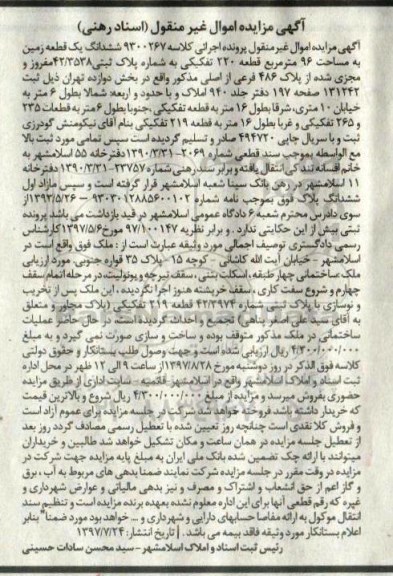 آگهی مزایده اموال غیر منقول (اسناد رهنی)
آگهی مزایده اموال غیر منقول پرونده اجرائی کلاسه ۹۳۰۰۲۶۷ ششدانگ یک قطعه زمین
به مساحت ۹۶ مترمربع قطعه ۲۲۰ تفکیکی به شماره پلاک ثبتی ۴۲/۳۵۳۸ مفروز و
مجزی شده از پلاک ۴۸۶ فرعی از اصلی مذکور واقع در بخش دوازده تهران ذیل ثبت
۱۳۱۲۴۲ صفحه ۱۹۷ دفتر جلد ۹۴۰ املاک و با حدود و اربعه: شمالا بطول ۶ متر به
خیابان ۱۰ متری، شرقا بطول ۱۶ متر به قطعه تفکیکی، جنوبا بطول ۶ متر به قطعات ۲۳۵
و ۲۶۵ تفکیکی و غربا بطول ۱۶ متر به قطعه ۲۱۹ تفکیکی بنام آقای نیکومنش گودرزی
ثبت و با سریال چاپی ۴۹۴۷۲۰ صادر و تسلیم گردیده است سپس تمامی مورد ثبت بالا
مع الواسطه بموجب سند قطعی شماره ۲۰۶۹-۱۳۹۰/۳/۳۱ دفترخانه ۵۵ اسلامشهر به
خانم افسانه تندکی انتقال یافته و برابر سند رهنی شماره ۲۳۷۵۷-۱۳۹۰/۳/۳۱ دفترخانه
۱۱ اسلامشهر در رهن بانک سینا شعبه اسلامشهر قرار گرفته است و سپس مازاد اول
ششدانگ پلاک فوق بموجب نامه شماره ۹۳۰۳۰۱۲۸۸۵۶۰۰۱۰۲ – ۱۳۹۳/۵/۲۶ از
سوی دادرس محترم شعبه ۶ دادگاه عمومی اسلامشهر در قید بازداشت می باشد پرونده
ثبتی بیش از این حکایتی ندارد. و برابر نظریه ۹۷/۱۰۰۱۴۷ مورخ ۱۳۹۷/۵/۶ کارشناس
رسمی دادگستری توصیف اجمالی مورد وثیقه عبارت است از: ملک فوق واقع است در
اسلامشهر - خیابان آیت الله کاشانی - کوچه ۱۵ - پلاک ۳۵ قواره جنوبی. مورد ارزیابی
ملک ساختمانی چهار طبقه، اسکلت بتنی، سقف تیرچه و یونولیت، در مرحله اتمام سقف
چهارم و شروع سفت کاری، سقف خرپشته هنوز اجرا نگردیده، این ملک پس از تخریب
و نوسازی با پلاک ثبتی شماره ۴۲/۳۹۷۴ قطعه ۲۱۹ تفکیکی (پلاک مجاور و متعلق
به آقای سید علی اصغر پناهی) تجمیع و احداث گردیده است، در حال حاضر عملیات
ساختمانی در ملک مذکور متوقف بوده و ساخت و سازی صورت نمی گیرد و به مبلغ
۴/۳۰۰/۰۰۰/۰۰۰ ریال ارزیابی شده است و جهت وصول طلب بستانکار و حقوق دولتی
کلاسه فوق الذکر در روز دوشنبه مورخ ۱۳۹۷/۸/۲۸ از ساعت ۹ الی ۱۲ ظهر در محل اداره
ثبت اسناد و املاک اسلامشهر واقع در اسلامشهر قائمیه - سایت اداری از طریق مزایده
حضوری بفروش میرسد و مزایده از مبلغ ۴/۳۰۰/۰۰۰/۰۰۰ ریال شروع و بالاترین قیمت
که خریدار داشته باشد فروخته خواهد شد شرکت در جلسه مزایده برای عموم آزاد است
و فروش کلا نقدی است چنانچه روز تعیین شده با تعطیل رسمی مصادف گردد روز بعد
از تعطیل جلسه مزایده در همان ساعت و مکان تشکیل خواهد شد طالبین و خریداران
میتوانند با ارائه چک تضمین شده بانک ملی ایران به مبلغ پایه مزایده جهت شرکت در
مزایده در وقت مقرر در جلسه مزایده شرکت نمایند ضمنا بدهی های مربوط به آب، برق
و گاز اعم از حق انشعاب و اشتراک و مصرف و نیز بدهی مالیاتی و عوارض شهرداری و
غیره که رقم قطعی آنها برای این اداره معلوم نشده بعهده برنده مزایده است و تنظیم سند
انتقال موکول به ارائه مفاصا حسابهای دارایی و شهرداری و ... خواهد بود مورد ضمنا" بنابر
اعلام بستانکار مورد وثیقه فاقد بیمه می باشد. | تاریخ انتشار: ۱۳۹۷/۷/۲۴
رئیس ثبت اسناد و املاک اسلامشهر - سید محسن سادات حسینی